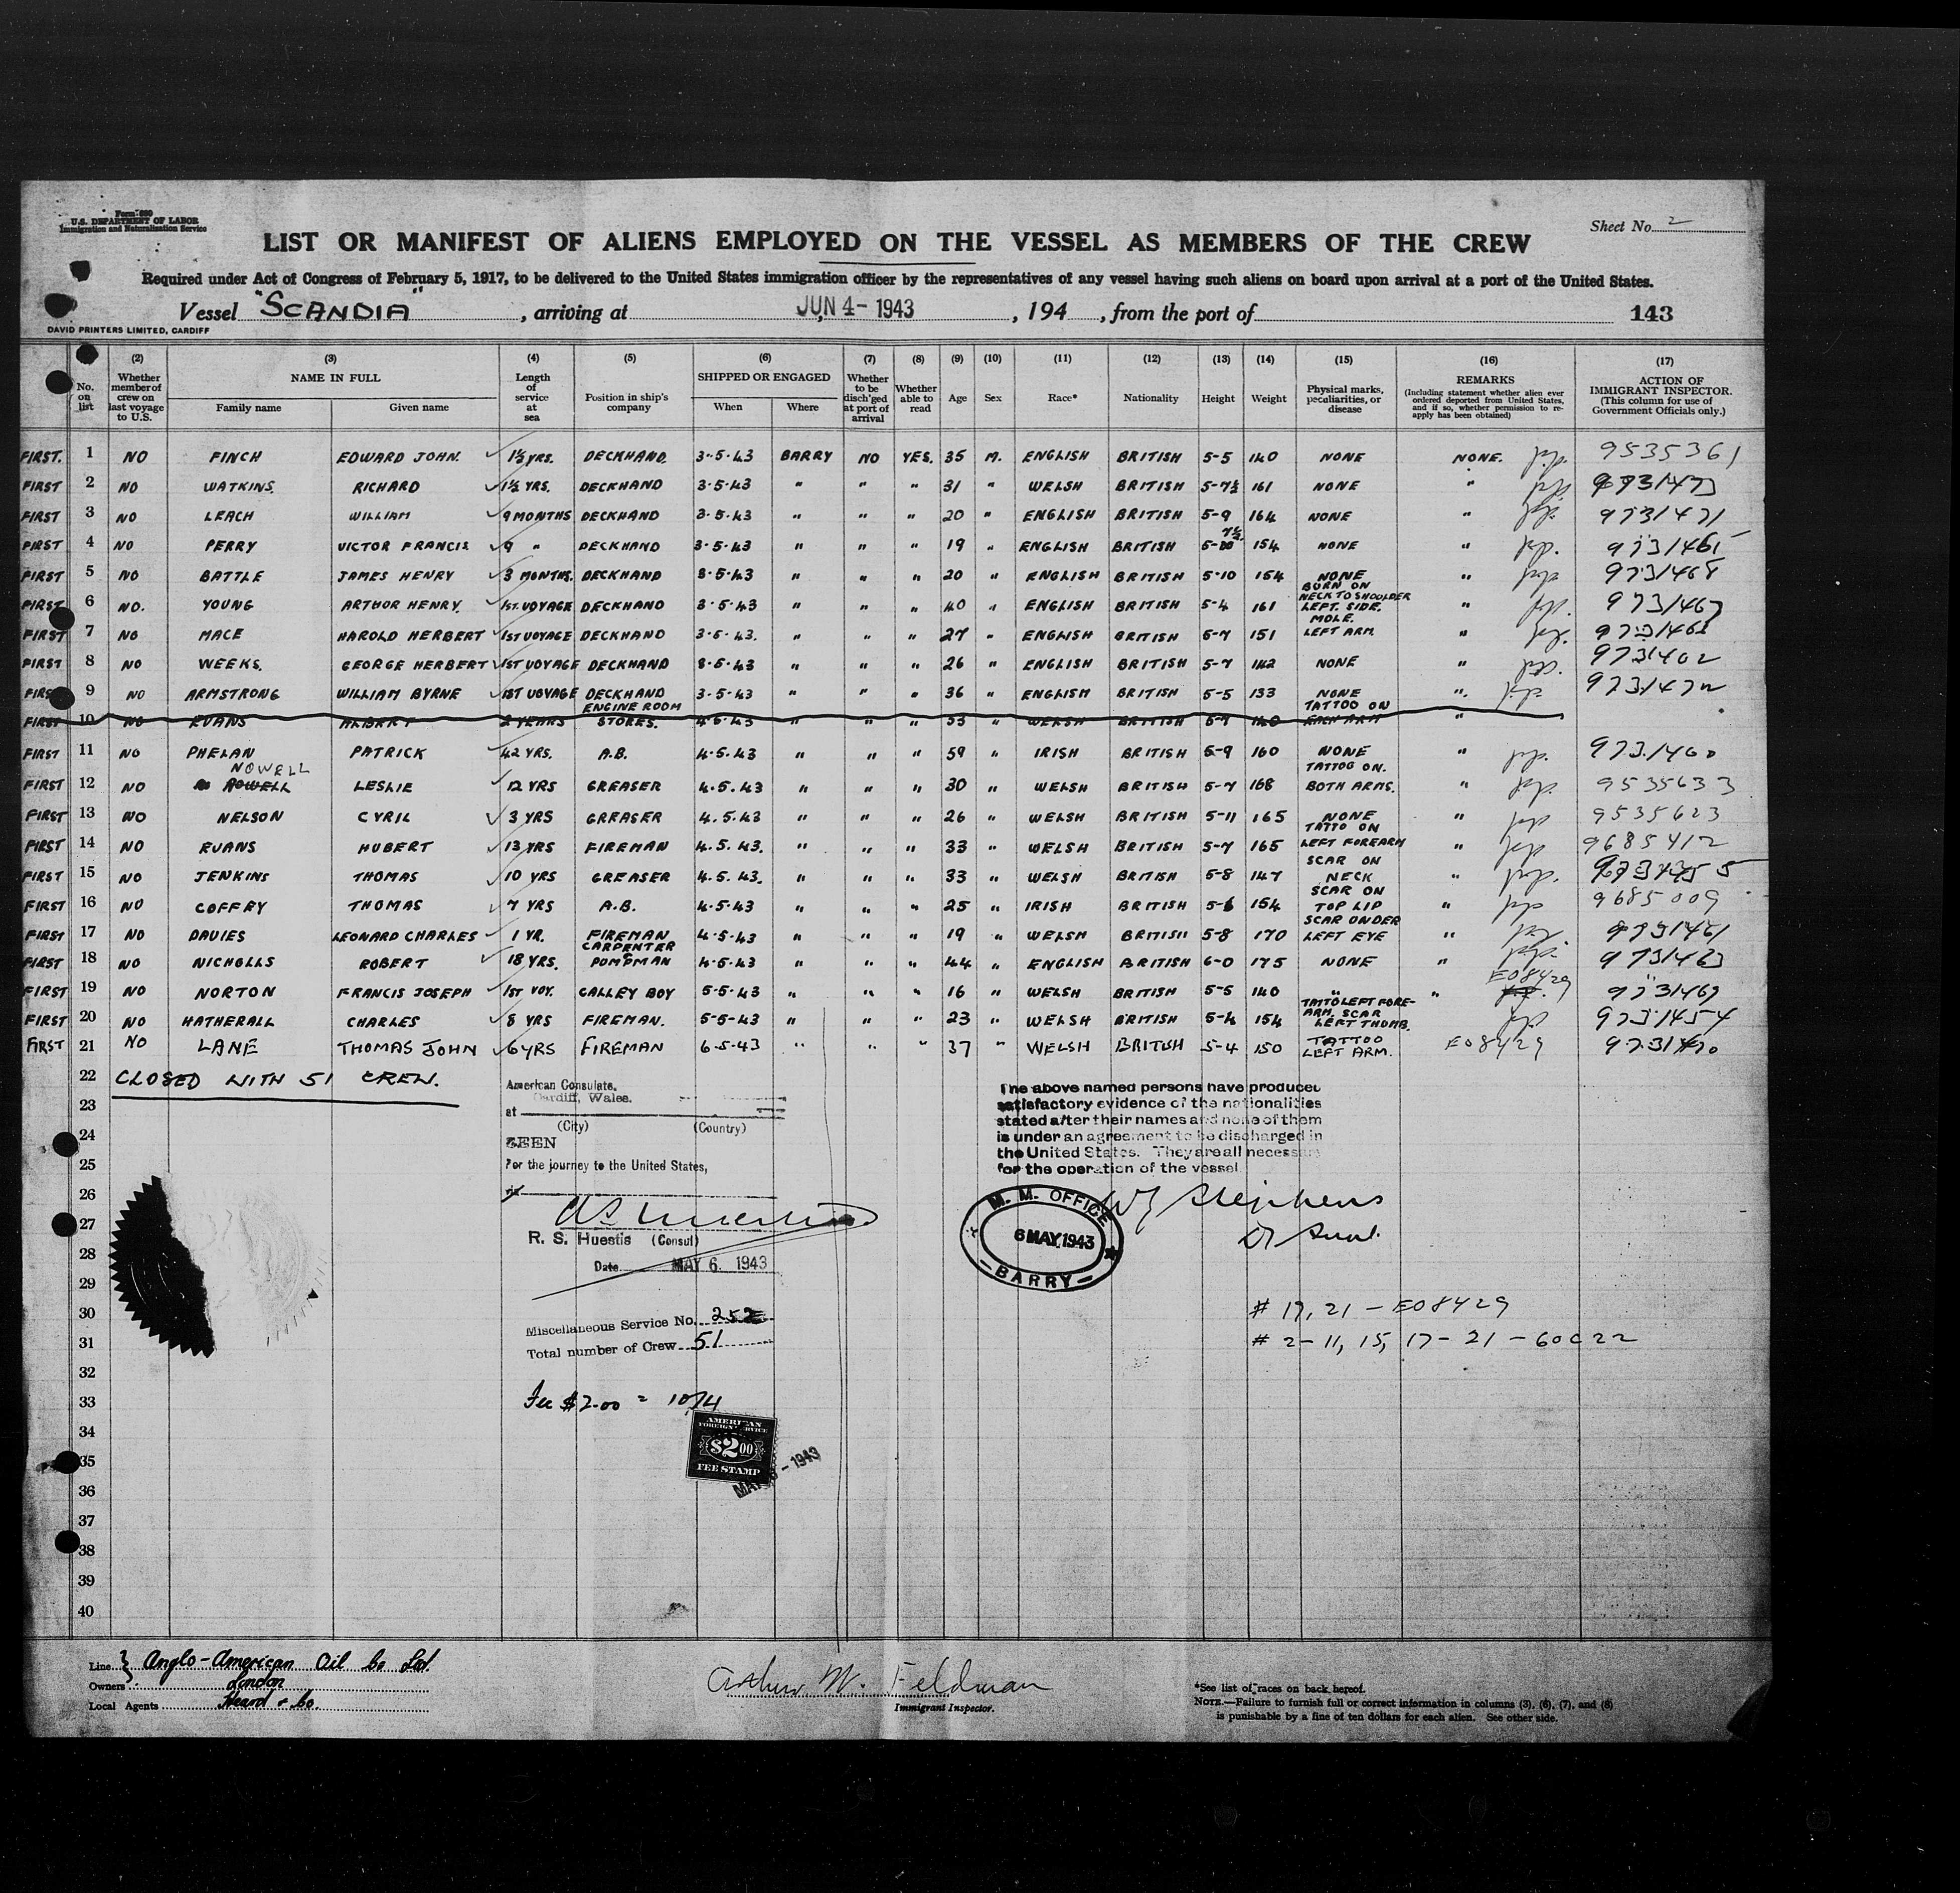 Form 680
U.S. DEPARTMENT OF LABOR
Immigration and Naturalization Service
Sheet No. 2
LIST OR MANIFEST OF ALIENS EMPLOYED ON THE VESSEL AS MEMBERS OF THE CREW
Required under Act of Congress of February 5, 1917, to be delivered to the United States immigration officer by the representatives of any vessel having such aliens on board upon arrival at a port of the United States.
Vessel "SCANDIA", arriving at JUN 4- 1943, 194 , from the port of 143
DAVID PRINTERS LIMITED, CARDIFF
(2) (3) (4) (5) (6) (7) (8) (9) (10) (11) (12) (13) (14) (15) (16) (17)
No. on list Whether member of crew on last voyage to U.S. NAME IN FULL Family name Given name Length of service at sea Position in ship's company SHIPPED OR ENGAGED When Where Whether to be disch'ged at port of arrival Whether able to read Age Sex Race* Nationality Height Weight Physical marks, peculiarities, or disease REMARKS (Including statement whether alien ever ordered deported from United States, and if so, whether permission to re-apply has been obtained) ACTION OF IMMIGRANT INSPECTOR. (This column for use of Government Officials only.)
FIRST. 1 NO FINCH EDWARD JOHN. 1½ YRS. DECKHAND. 3-5-43 BARRY NO YES. 35 M. ENGLISH BRITISH 5-5 140 NONE NONE. 9535361
FIRST 2 NO WATKINS. RICHARD 1½ YRS. DECKHAND 3-5-43 " " " 31 " WELSH BRITISH 5-7½ 161 NONE "
FIRST 3 NO LEACH WILLIAM 9 MONTHS DECKHAND 3-5-43 " " " 20 " ENGLISH BRITISH 5-9 164 NONE " 9731471
FIRST 4 NO PERRY VICTOR FRANCIS 9 " DECKHAND 3-5-43 " " " 19 " ENGLISH BRITISH 5-7½ 154 NONE " 9731465
FIRST 5 NO BATTLE JAMES HENRY 3 MONTHS. DECKHAND 3-5-43 " " " 20 " ENGLISH BRITISH 5-10 154 NONE " 9731468
FIRST 6 NO. YOUNG ARTHUR HENRY. 1ST. VOYAGE DECKHAND 3-5-43 " " " 40 " ENGLISH BRITISH 5-4 161 BURN ON NECK TO SHOULDER LEFT. SIDE. "
FIRST 7 NO MACE HAROLD HERBERT 1ST VOYAGE DECKHAND 3-5-43. " " " 27 " ENGLISH BRITISH 5-7 151 MOLE. LEFT ARM. "
FIRST 8 NO WEEKS. GEORGE HERBERT 1ST VOYAGE DECKHAND 3-5-43 " " " 26 " ENGLISH BRITISH 5-7 142 NONE "
FIRST 9 NO ARMSTRONG WILLIAM BYRNE 1ST VOYAGE DECKHAND 3-5-43 " " " 36 " ENGLISH BRITISH 5-5 133 NONE "
FIRST 10 NO EVANS ALBERT 2 YEARS ENGINE ROOM STORES. 4-5-43 " " " 53 " WELSH BRITISH 5-7 140 TATTOO ON EACH ARM "
FIRST 11 NO PHELAN PATRICK 42 YRS. A.B. 4-5-43 " " " 59 " IRISH BRITISH 5-9 160 NONE " 9731460
FIRST 12 NO NOWELL LESLIE 12 YRS GREASER 4-5-43 " " " 30 " WELSH BRITISH 5-7 168 TATTOO ON. BOTH ARMS. " 9535633
FIRST 13 NO NELSON CYRIL 3 YRS GREASER 4.5.43 " " " 26 " WELSH BRITISH 5-11 165 NONE " 9535623
FIRST 14 NO EVANS HUBERT 13 YRS FIREMAN 4.5.43. " " " 33 " WELSH BRITISH 5-7 165 TATTO ON LEFT FOREARM " 9685412
FIRST 15 NO JENKINS THOMAS 10 YRS GREASER 4.5.43. " " " 33 " WELSH BRITISH 5-8 147 SCAR ON NECK "
FIRST 16 NO COFFEY THOMAS 7 YRS A.B. 4-5-43 " " " 25 " IRISH BRITISH 5-6 154 SCAR ON TOP LIP " 9685009
FIRST 17 NO DAVIES LEONARD CHARLES 1 YR. FIREMAN 4-5-43 " " " 19 " WELSH BRITISH 5-8 170 SCAR UNDER LEFT EYE "
FIRST 18 NO NICHOLLS ROBERT 18 YRS. CARPENTER & PUMPMAN 4-5-43 " " " 44 " ENGLISH BRITISH 6-0 175 NONE " 9731463
FIRST 19 NO NORTON FRANCIS JOSEPH 1ST VOY. GALLEY BOY 5-5-43 " " " 16 " WELSH BRITISH 5-5 140 " " E08429
FIRST 20 NO HATHERALL CHARLES 8 YRS FIREMAN. 5-5-43 " " " 23 " WELSH BRITISH 5-4 154 TATTO LEFT FORE-ARM. SCAR LEFT THUMB. 9731454
FIRST 21 NO LANE THOMAS JOHN 6 YRS FIREMAN 6-5-43 " " " 37 " WELSH BRITISH 5-4 150 TATTOO LEFT ARM. E08429
22 CLOSED WITH 51 CREW.
23
24
25
26
27
28
29
30
31
32
33
34
35
36
37
38
39
40
American Consulate.
at Cardiff, Wales.
(City) (Country)
SEEN
For the journey to the United States,
via
R. S. Huestis (Consul)
Date MAY 6 1943
Miscellaneous Service No. 252
Total number of Crew 51
Fee $2.00 = 10/4
AMERICAN FOREIGN SERVICE
$2.00
FEE STAMP
MAY 6 - 1943
The above named persons have produced
satisfactory evidence of the nationalities
stated after their names and none of them
is under an agreement to be discharged in
the United States. They are all necessary
for the operation of the vessel
M. M. OFFICE
6 MAY 1943
BARRY
WJ Stephens
# 19, 21 - E08429
# 2-11, 15, 17-21 - 60C22
Line } Anglo-American Oil Co Ltd.
Owners London
Local Agents Heard & Co.
Arthur W. Feldman
Immigrant Inspector.
*See list of races on back hereof.
NOTE.—Failure to furnish full or correct information in columns (3), (6), (7), and (8)
is punishable by a fine of ten dollars for each alien. See other side.